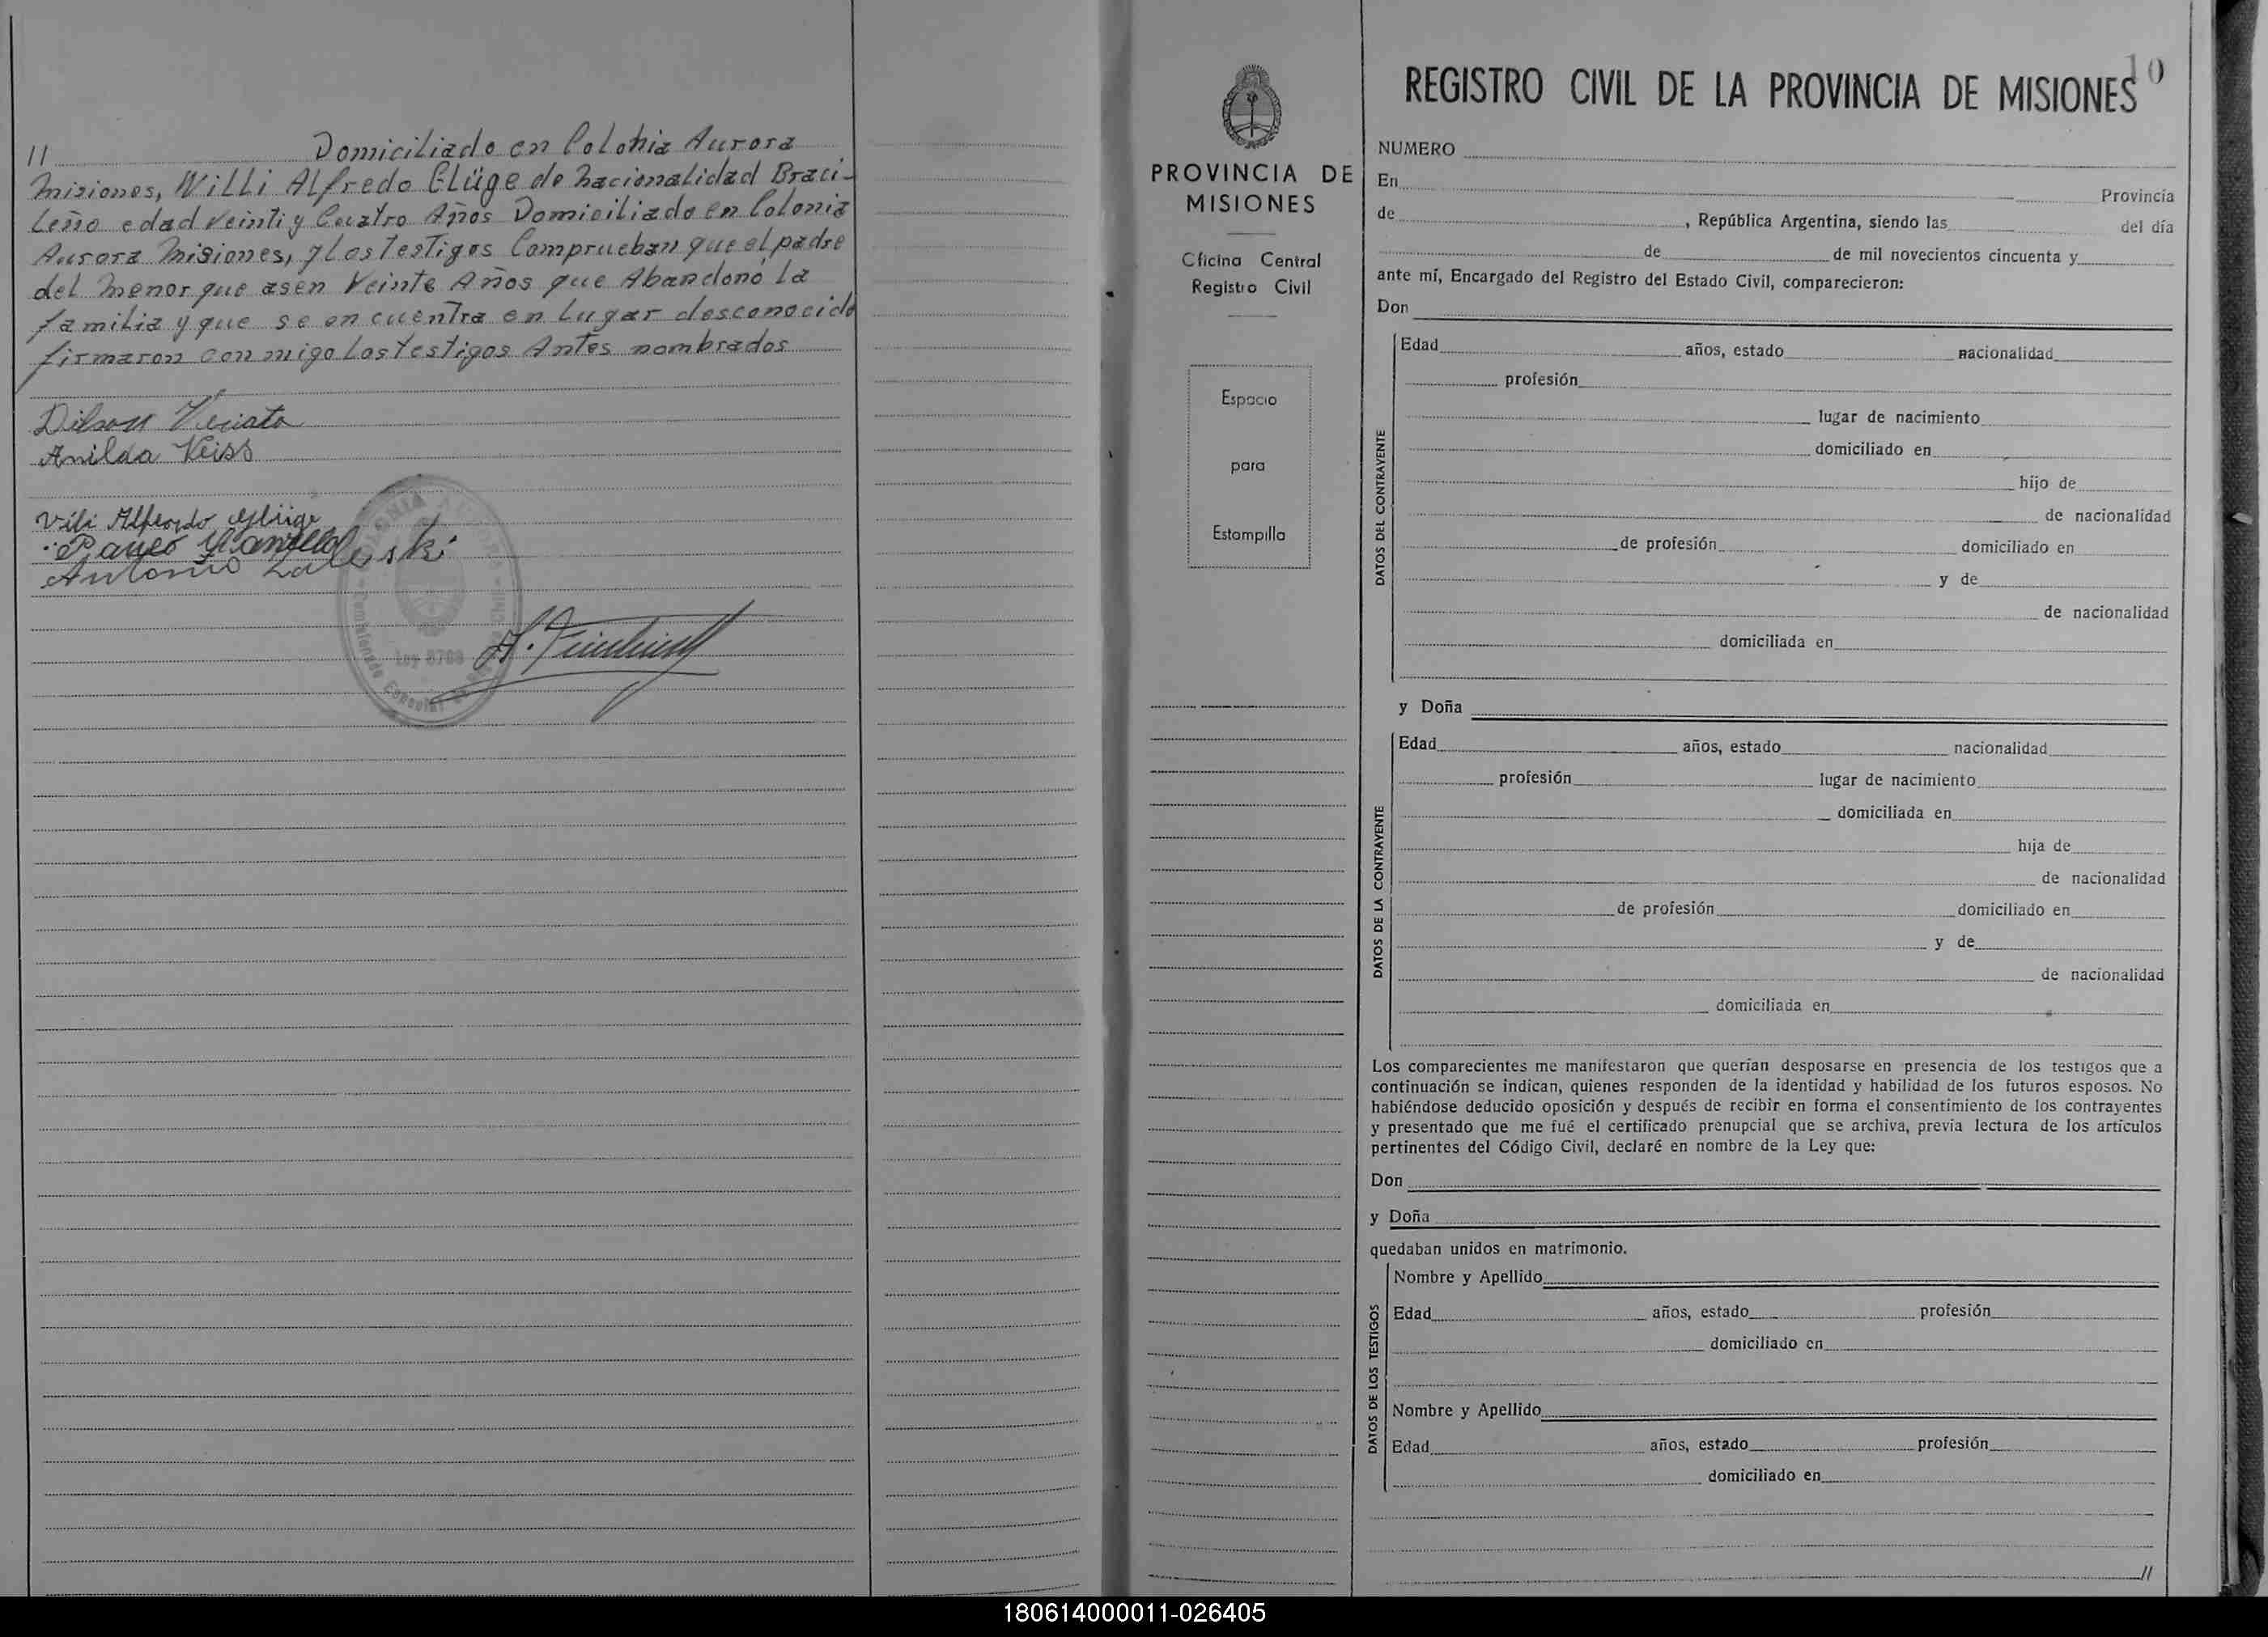 11 Domiciliado en Colonia Aurora
Misiones, Willi Alfredo Glüge de Nacionalidad Braci-
leño edad veinti y Cuatro Años Domiciliado en Colonia
Aurora Misiones, y Los Testigos Comprueban que el padre
del Menor que asen Veinte Años que Abandonó La
familia y que se encuentra en Lugar desconocido
firmaron conmigo Los Testigos Antes nombrados
Dilson
Anilda Veiss
Vili Alfredo Glüge
Antonio Zaleski
Ley 8709
10
REGISTRO CIVIL DE LA PROVINCIA DE MISIONES
PROVINCIA DE
MISIONES
Oficina Central
Registro Civil
Espacio
para
Estampilla
NUMERO
En Provincia
de , República Argentina, siendo las del día
de de mil novecientos cincuenta y
ante mí, Encargado del Registro del Estado Civil, comparecieron:
Don
DATOS DEL CONTRAYENTE
Edad años, estado nacionalidad
profesión
lugar de nacimiento
domiciliado en
hijo de
de nacionalidad
de profesión domiciliado en
y de
de nacionalidad
domiciliada en
y Doña
DATOS DE LA CONTRAYENTE
Edad años, estado nacionalidad
profesión lugar de nacimiento
domiciliada en
hija de
de nacionalidad
de profesión domiciliado en
y de
de nacionalidad
domiciliada en
Los comparecientes me manifestaron que querían desposarse en presencia de los testigos que a
continuación se indican, quienes responden de la identidad y habilidad de los futuros esposos. No
habiéndose deducido oposición y después de recibir en forma el consentimiento de los contrayentes
y presentado que me fué el certificado prenupcial que se archiva, previa lectura de los artículos
pertinentes del Código Civil, declaré en nombre de la Ley que:
Don
y Doña
quedaban unidos en matrimonio.
DATOS DE LOS TESTIGOS
Nombre y Apellido
Edad años, estado profesión
domiciliado en
Nombre y Apellido
Edad años, estado profesión
domiciliado en
//
180614000011-026405